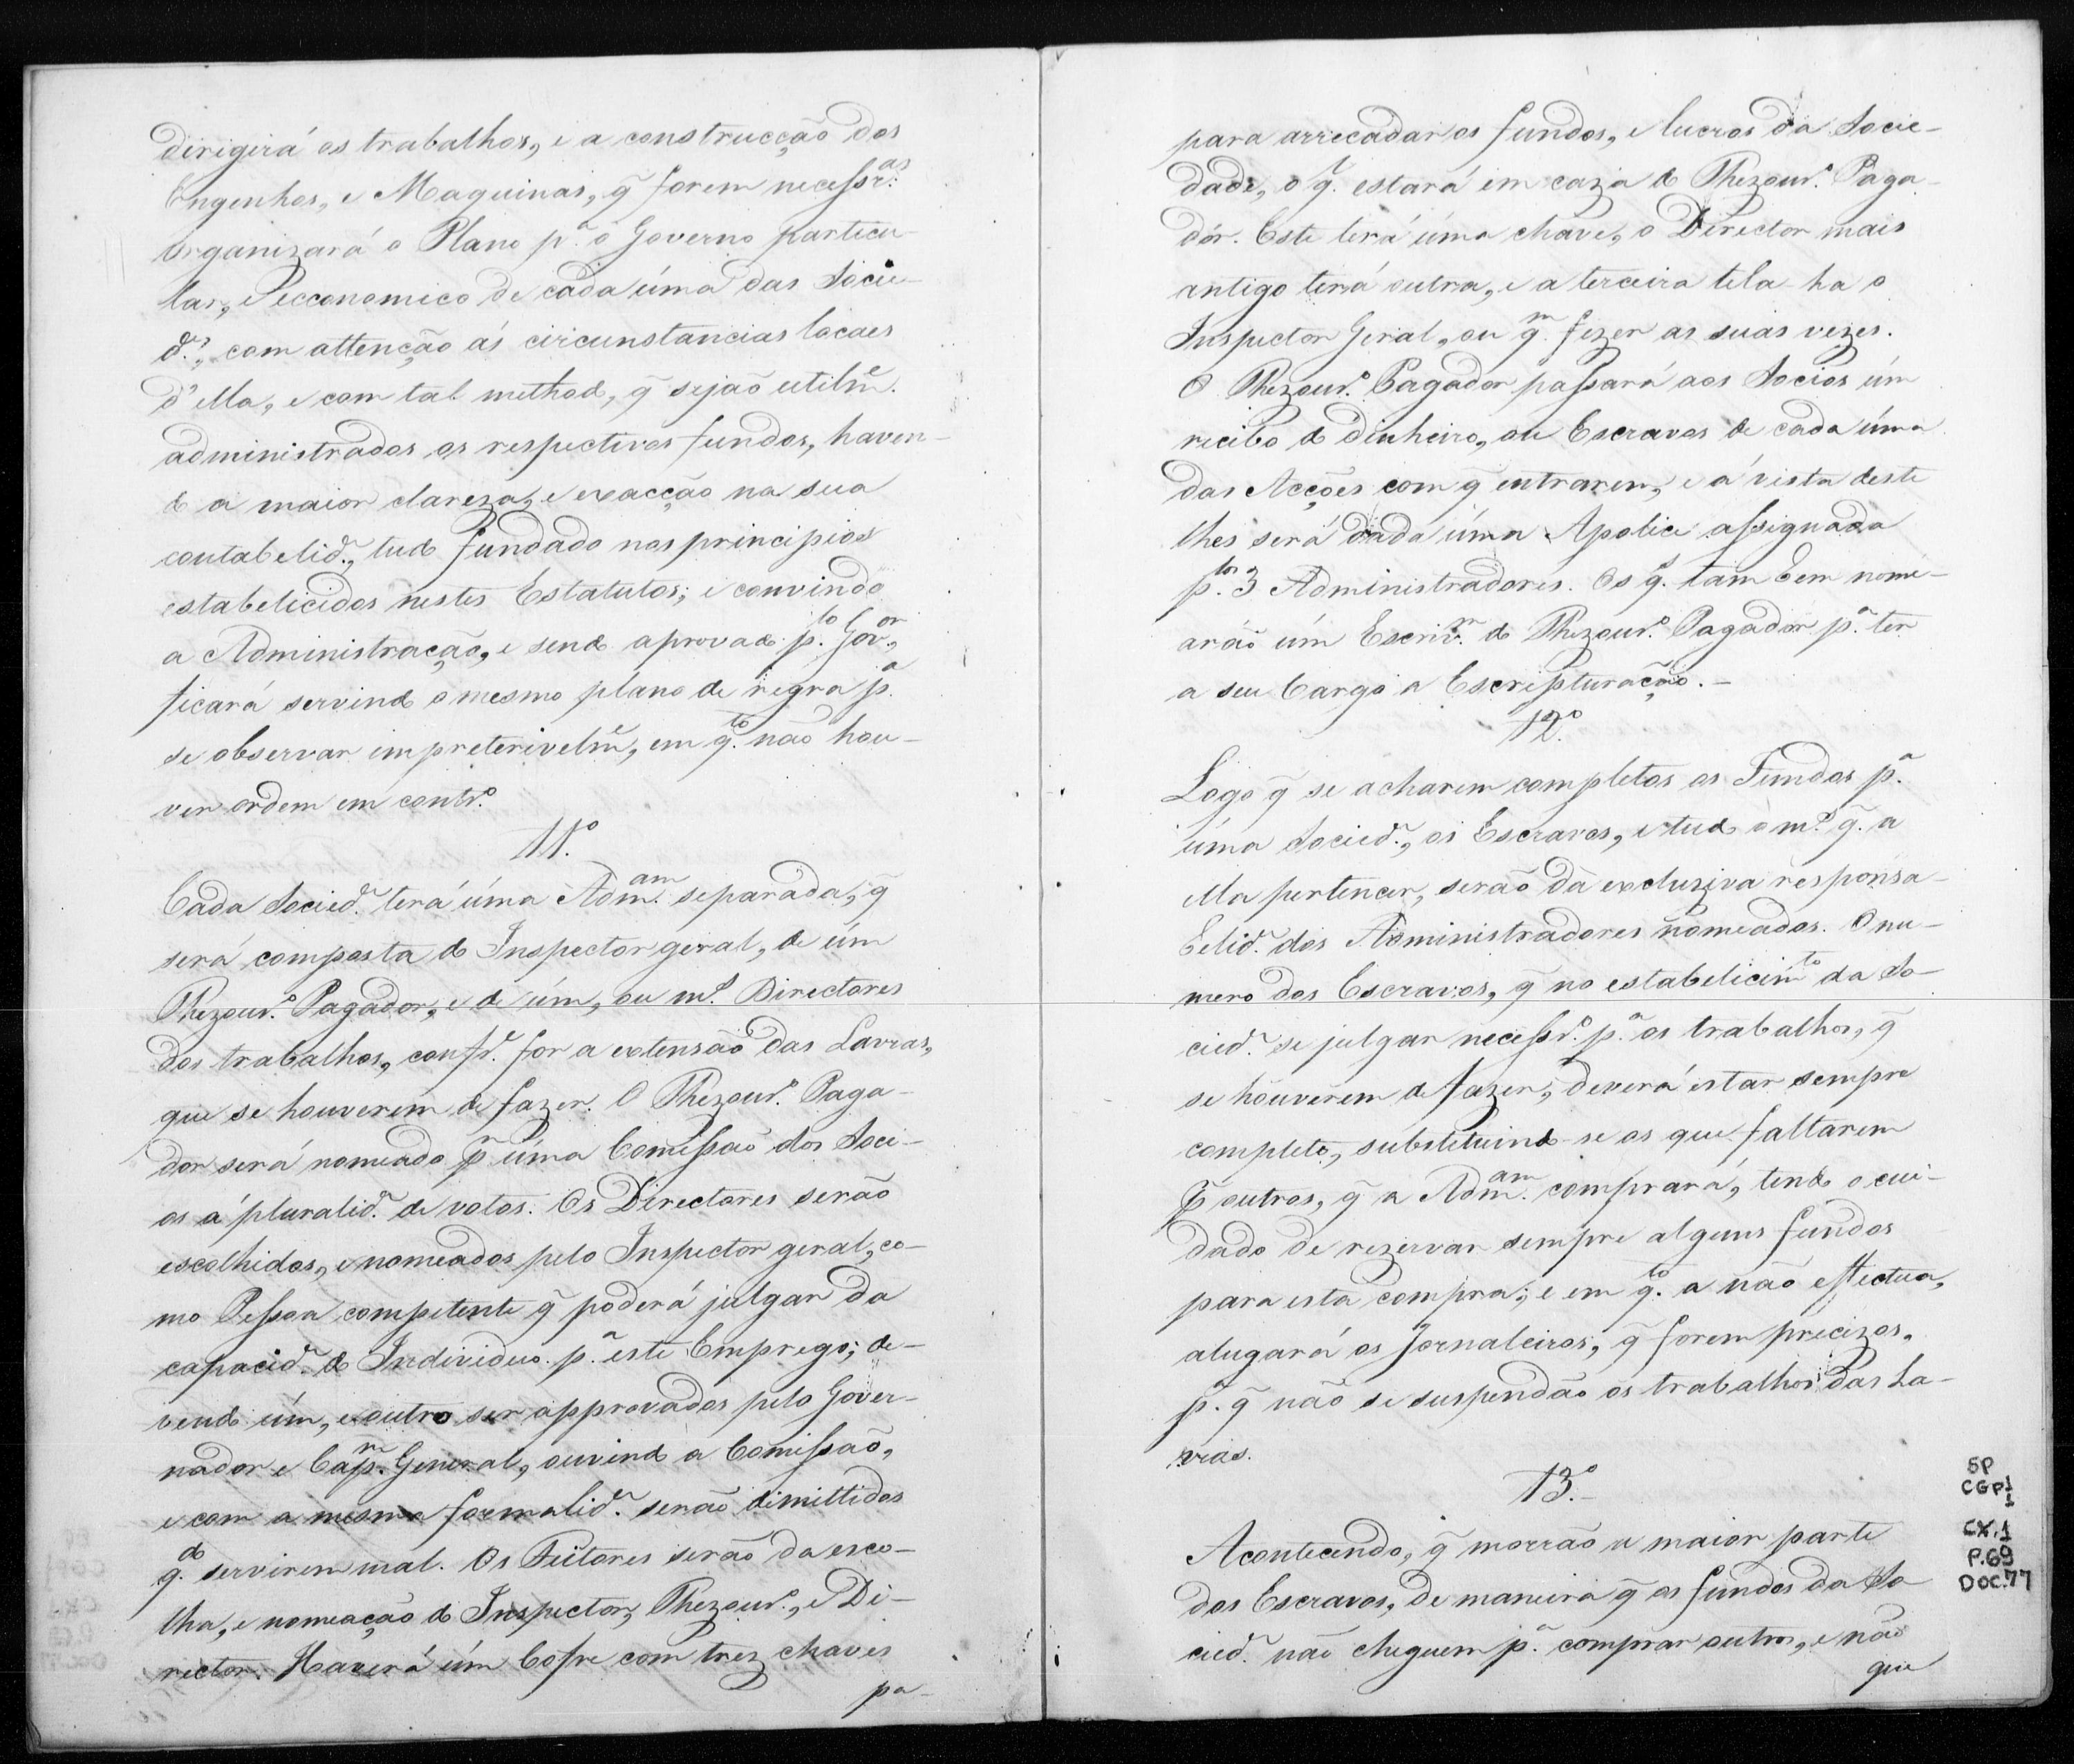 dirigirá os trabalhos, e a construcção dos
Engenhos, e Maquinas, q̃ forem necessr.as
organizará o Plano p.a o Governo particu-
lar, e economico de cada úma das Socie-
d.es, com attenção ás circunstancias locaes
d'ella, e com tal methodo, q̃ sejaõ utilm.e
administrados os respectivos fundos, haven-
do a maior clareza, e exacção na sua
contabelid.e, tudo fundado nos principios
estabelicidos nestes Estatutos; e convindo
a Administração, e sendo aprovado p.lo Gov.or,
ficará servindo o mesmo plano de regra p.a
se observar impreterivelm.e, em q.to não hou-
ver ordem em contr.o
11.o
Cada Socied.e terá úma Adm.am separada, q̃
será composta do Inspector geral, de úm
Thezour.o Pagador, e de úm, ou m.s Directores
dos trabalhos, conf.e for a extensão das Lavras,
que se houverem de fazer. O Thezour.o Paga-
dor será nomeado p.r úma Comissaõ dos Soci-
os á pluralid.e de votos. Os Directores serão
escolhidos, e nomeados pelo Inspector geral, co-
mo Pessoa competente q̃ poderá julgar da
capacid.e do Individuo p.a este Emprego; de-
vendo úm, e outro ser approvados pelo Gover-
nador e Cap.m General, ouvindo a Comissaõ,
e com a mesma formalid.e serão dimittidos
q.do servirem mal. Os Feitores serão da esco-
lha, e nomeação do Inspector, Thezour.o, e Di-
rector. Haverá úm Cofre com trez chaves
pa-
para arrecadar os fundos, e lucros da Socie-
dade, o q̃. estará em caza do Thezour.o Paga-
dór. Este terá úma chave, o Director mais
antigo terá outra, e a terceira tela-ha o
Inspector Geral, ou q.m fizer as suas vezes.
O Thezour.o Pagador passará aos Socios úm
recibo do dinheiro, ou Escravos de cada úma
das Acções com q̃ entrarem, e á vista deste
lhes será dada úma Apolice assignada
p.los 3 Administradores. Os q.s tam bem nome-
arão úm Escriv.m do Thezour.o Pagador p.a ter
a seu Cargo a Escripturação.-
12.o
Logo q̃ se acharem completos os Fundos p.a
úma Socied.e, os Escravos, e tudo o m.s q̃. a
ella pertencer, serão da excluziva responsa-
belid.e dos Administradores nomeados. O nu-
mero dos Escravos, q̃ no estabelicim.to da So-
cied.e se julgar necessr.o p.a os trabalhos, q̃
se houverem de fazer, deverá estar sempre
completo, substituindo-se os que faltarem
p.r outros, q̃ a Adm.am comprará, tendo o cui-
dado de rezervar sempre alguns fundos
para esta compra; e em q.to a não effectua,
alugará os Jornaleiros, q̃ forem precizos,
p.a q̃ não se suspendão os trabalhos das La-
vras.
13.o
Acontecendo, q̃ morrão a maior parte
dos Escravos, de maneira q̃ os fundos da So
cied.e não cheguem p.a comprar outros, e não
que
SP
CGP1
1
CX.1
P.69
DOC.77